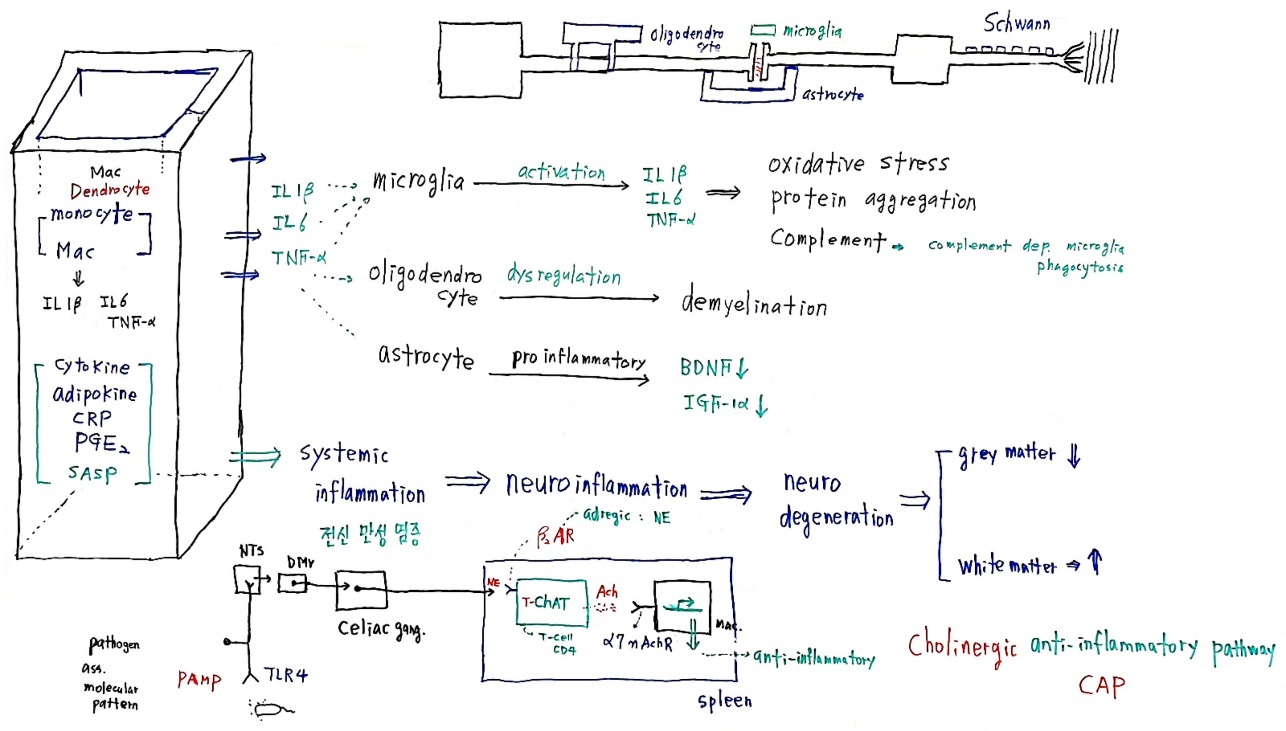 Schwann
oligodendro
cyte
microglia
astrocyte
Mac
Dendrocyte
monocyte
Mac
IL1β IL6
TNF-α
cytokine
adipokine
CRP
PGE₂
SASP
IL1β
IL6
TNF-α
microglia
activation
IL1β
IL6
TNF-α
oxidative stress
protein aggregation
Complement → complement dep. microglia
phagocytosis
oligodendro
cyte
dysregulation
demyelination
astrocyte
pro inflammatory
BDNF↓
IGF-1α↓
systemic
inflammation
전신 만성 염증
⇒ neuroinflammation
⇒ neuro
degeneration
⇒ grey matter ⇓
white matter ⇒ ⇑
adregic : NE
β₂AR
NTS
DMV
Celiac gang.
NE
T-ChAT
T-cell
CD4
Ach
α7nAchR
Mac.
anti-inflammatory
spleen
pathogen
ass.
molecular
pattern
PAMP
TLR4
Cholinergic anti-inflammatory pathway
CAP